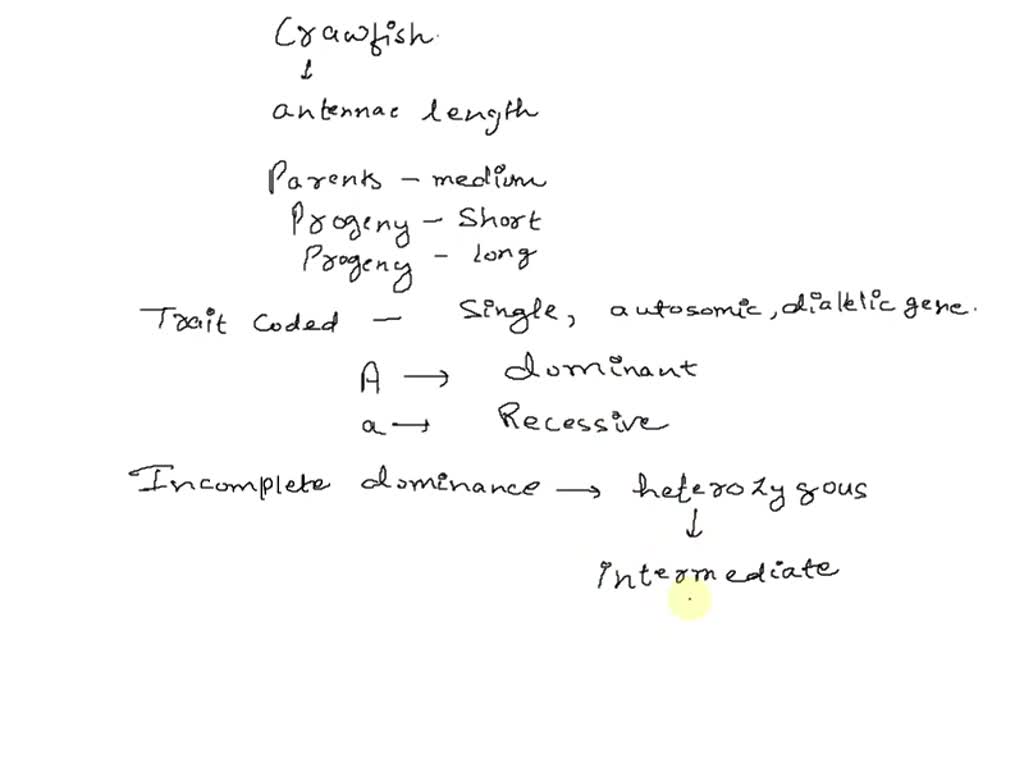 Crawfish.
↓
antennae length
Parents - medium
Progeny - Short
Progeny - long
Trait coded - Single, autosomic, dialelic gene.
A → dominant
a → Recessive
Incomplete dominance → heterozygous
↓
intermediate